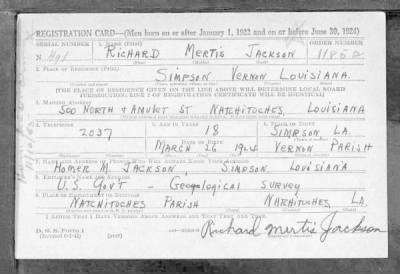 REGISTRATION CARD—(Men born on or after January 1, 1922 and on or before June 30, 1924)
SERIAL NUMBER 1. NAME (Print) ORDER NUMBER
RICHARD MERTIS JACKSON
(First) (Middle) (Last)
2. PLACE OF RESIDENCE (Print)
SIMPSON VERNON LOUISIANA
[THE PLACE OF RESIDENCE GIVEN ON THE LINE ABOVE WILL DETERMINE LOCAL BOARD
JURISDICTION; LINE 2 OF REGISTRATION CERTIFICATE WILL BE IDENTICAL]
3. MAILING ADDRESS
500 NORTH & AMULET ST NATCHITOCHES, LOUISIANA
4. TELEPHONE 5. AGE IN YEARS 6. PLACE OF BIRTH
2037 18 SIMPSON LA.
DATE OF BIRTH
MARCH 26 VERNON PARISH
7. NAME AND ADDRESS OF PERSON WHO WILL ALWAYS KNOW YOUR ADDRESS
HOMER M. JACKSON, SIMPSON, LOUISIANA
8. EMPLOYER'S NAME AND ADDRESS
U.S. GOVT — GEOLOGICAL SURVEY
9. PLACE OF EMPLOYMENT OR BUSINESS
NATCHITOCHES PARISH NATCHITOCHES, LA.
I AFFIRM THAT I HAVE VERIFIED ABOVE ANSWERS AND THAT THEY ARE TRUE.
D. S. S. FORM 1
(Revised 6-1-42) (over)
Richard Mertis Jackson